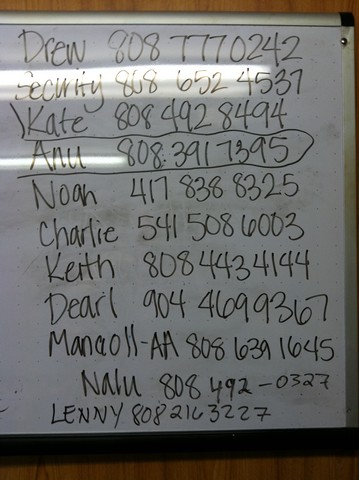 Drew 808 777 0242
Security 808 652 4537
Kate 808 492 8494
Anu 808.391 7395
Noah 417 838 8325
Charlie 541 508 6003
Keith 808 443 4144
Dearl 904 469 9367
808 639 1645
Nalu 808 492-0327
LENNY 808 216 3227